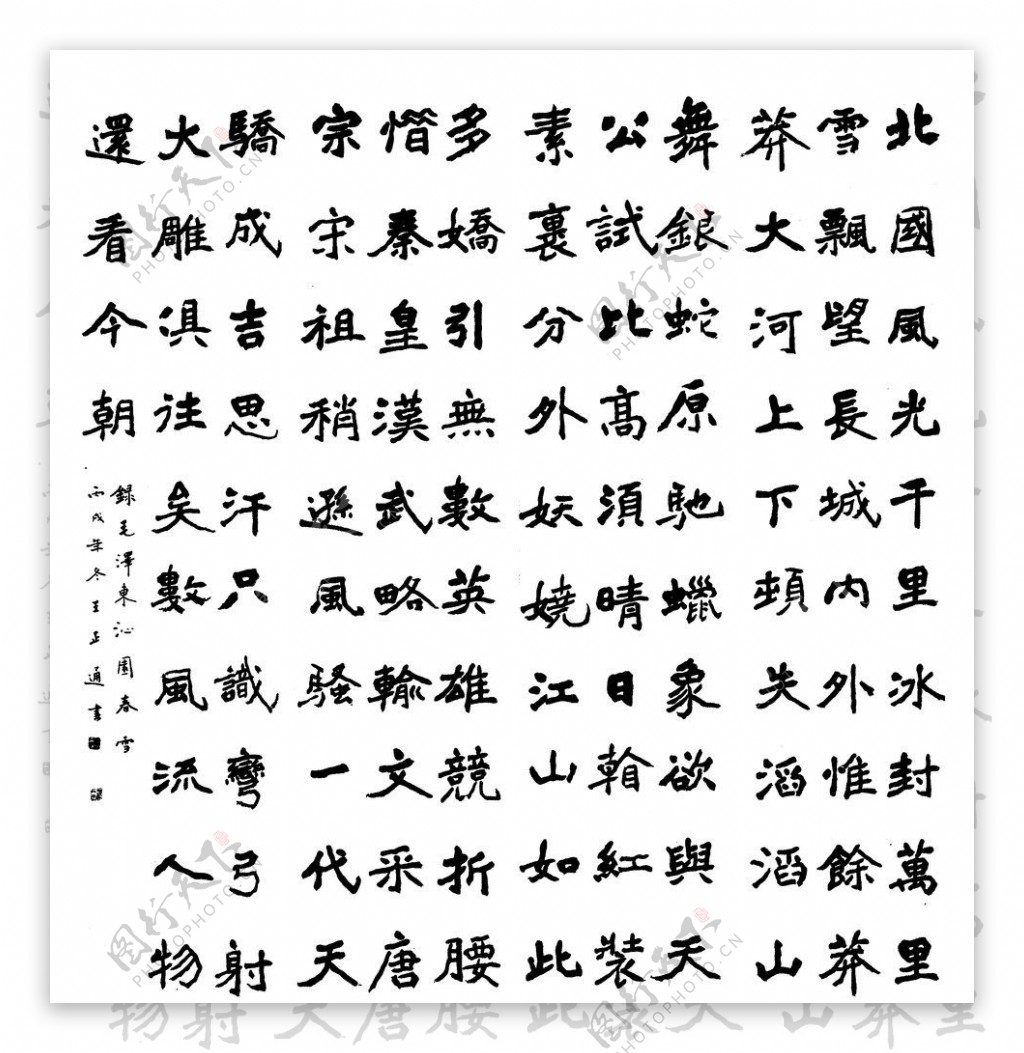 北國風光千里冰封萬里
雪飄望長城内外惟餘莽
莽大河上下頓失滔滔山
舞銀蛇原馳蠟象欲與天
公試比高須晴日看紅裝
素裹分外妖嬈江山如此
多嬌引無數英雄競折腰
惜秦皇漢武略輸文采唐
宗宋祖稍遜風騷一代天
驕成吉思汗只識彎弓射
大雕俱往矣數風流人物
還看今朝
錄毛澤東沁園春雪
丙戌年冬王正通書